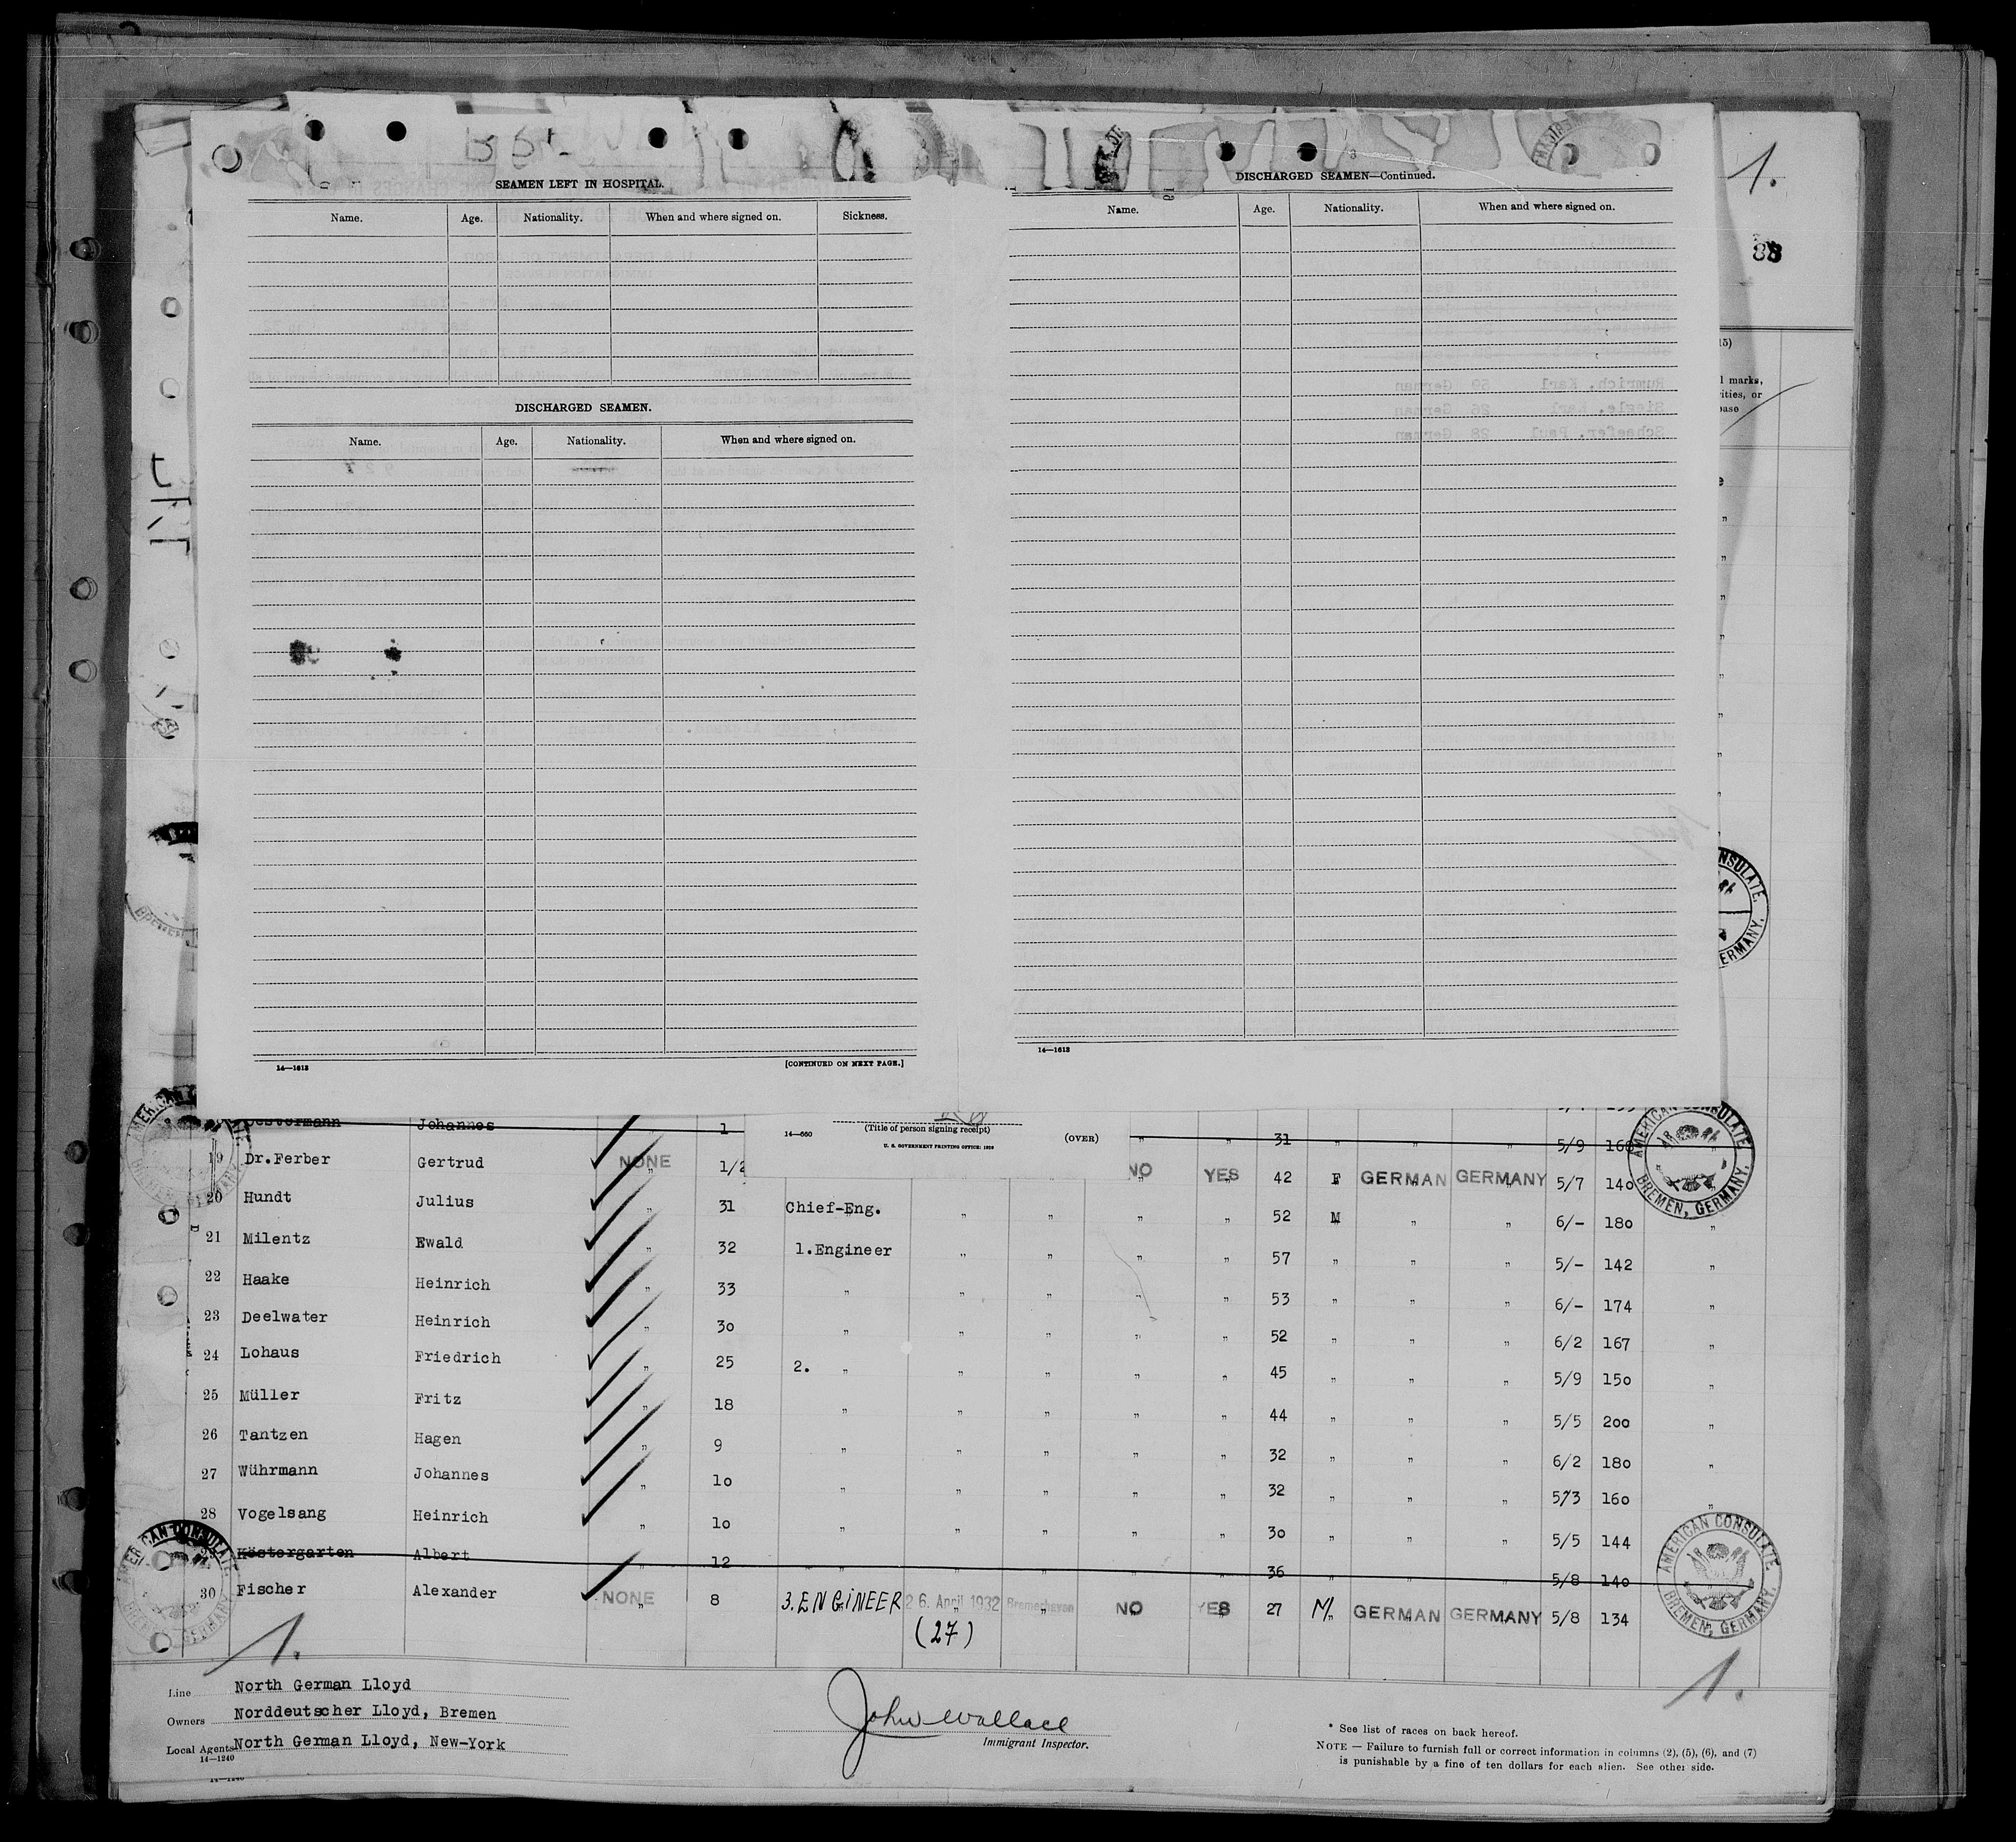 1.
88
SEAMEN LEFT IN HOSPITAL.
Name. Age. Nationality. When and where signed on. Sickness.
DISCHARGED SEAMEN.
Name. Age. Nationality. When and where signed on.
14—1613 [CONTINUED ON NEXT PAGE.]
DISCHARGED SEAMEN—Continued.
Name. Age. Nationality. When and where signed on.
14—1613
marks,
or
14—660 (Title of person signing receipt) (OVER)
U. S. GOVERNMENT PRINTING OFFICE: 1926
Johannes 1 " " 31 " " " 5/9 "
19 Dr.Ferber Gertrud NONE 1/2 NO YES 42 F GERMAN GERMANY 5/7 140 "
20 Hundt Julius " 31 Chief-Eng. " " " " 52 M " " 6/- 180 "
21 Milentz Ewald " 32 1.Engineer " " " " 57 " " " 5/- 142 "
22 Haake Heinrich " 33 " " " " " 53 " " " 6/- 174 "
23 Deelwater Heinrich " 30 " " " " " 52 " " " 6/2 167 "
24 Lohaus Friedrich " 25 2. " " " " " 45 " " " 5/9 150 "
25 Müller Fritz " 18 " " " " " 44 " " " 5/5 200 "
26 Tantzen Hagen " 9 " " " " " 32 " " " 6/2 180 "
27 Wührmann Johannes " 10 " " " " " 32 " " " 5/3 160 "
28 Vogelsang Heinrich " 10 " " " " " 30 " " " 5/5 144 "
Köstergarten Albert " 12 " " " " " 36 " " " 5/8 140
30 Fischer Alexander NONE 8 3. ENGINEER 26. April 1932 Bremerhaven NO YES 27 M. GERMAN GERMANY 5/8 134 "
(27)
1.
1.
AMERICAN CONSULATE
BREMEN, GERMANY.
AMERICAN CONSULATE
BREMEN, GERMANY.
Line North German Lloyd
Owners Norddeutscher Lloyd, Bremen
Local Agents North German Lloyd, New-York
14—1240
John Wallace
Immigrant Inspector.
* See list of races on back hereof.
NOTE — Failure to furnish full or correct information in columns (2), (5), (6), and (7)
is punishable by a fine of ten dollars for each alien. See other side.